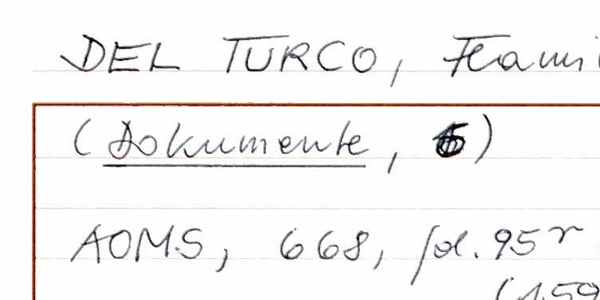 DEL TURCO, Flami
(Dokumente, 6)
AOMS, 668, fol. 95r
(159